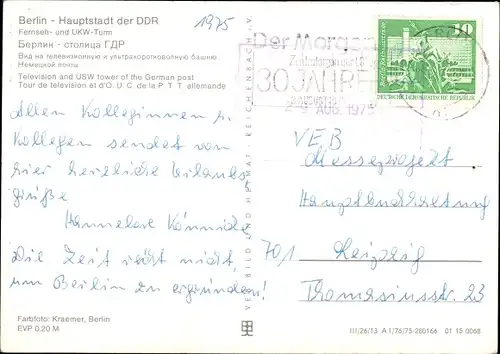 Berlin - Hauptstadt der DDR
Fernseh- und UKW-Turm
Берлин - столица ГДР
Вид на телевизионную и ультракоротковолновую башню
Немецкой почты
Television and USW tower of the German post
Tour de télévision et d'O. U. C. de la P T T allemande
1975
Der Morgen
Zentralorgan der LDPD
30 JAHRE
AUG. 1975
10
DEUTSCHE DEMOKRATISCHE REPUBLIK
Allen Kolleginnen u.
Kollegen sendet von
hier herzliche Urlaubs
grüße
Hannelore
Die Zeit reicht nicht,
um Berlin zu ergründen!
VEB
Messeprojekt
Hauptbuchhaltung
701 Leipzig
Thomasiusstr. 23
VERLAG BILD UND HEIMAT REICHENBACH I. V.
Farbfoto: Kraemer, Berlin
EVP 0.20 M
III/26/13 A 1/76/75-280166 01 15 0068